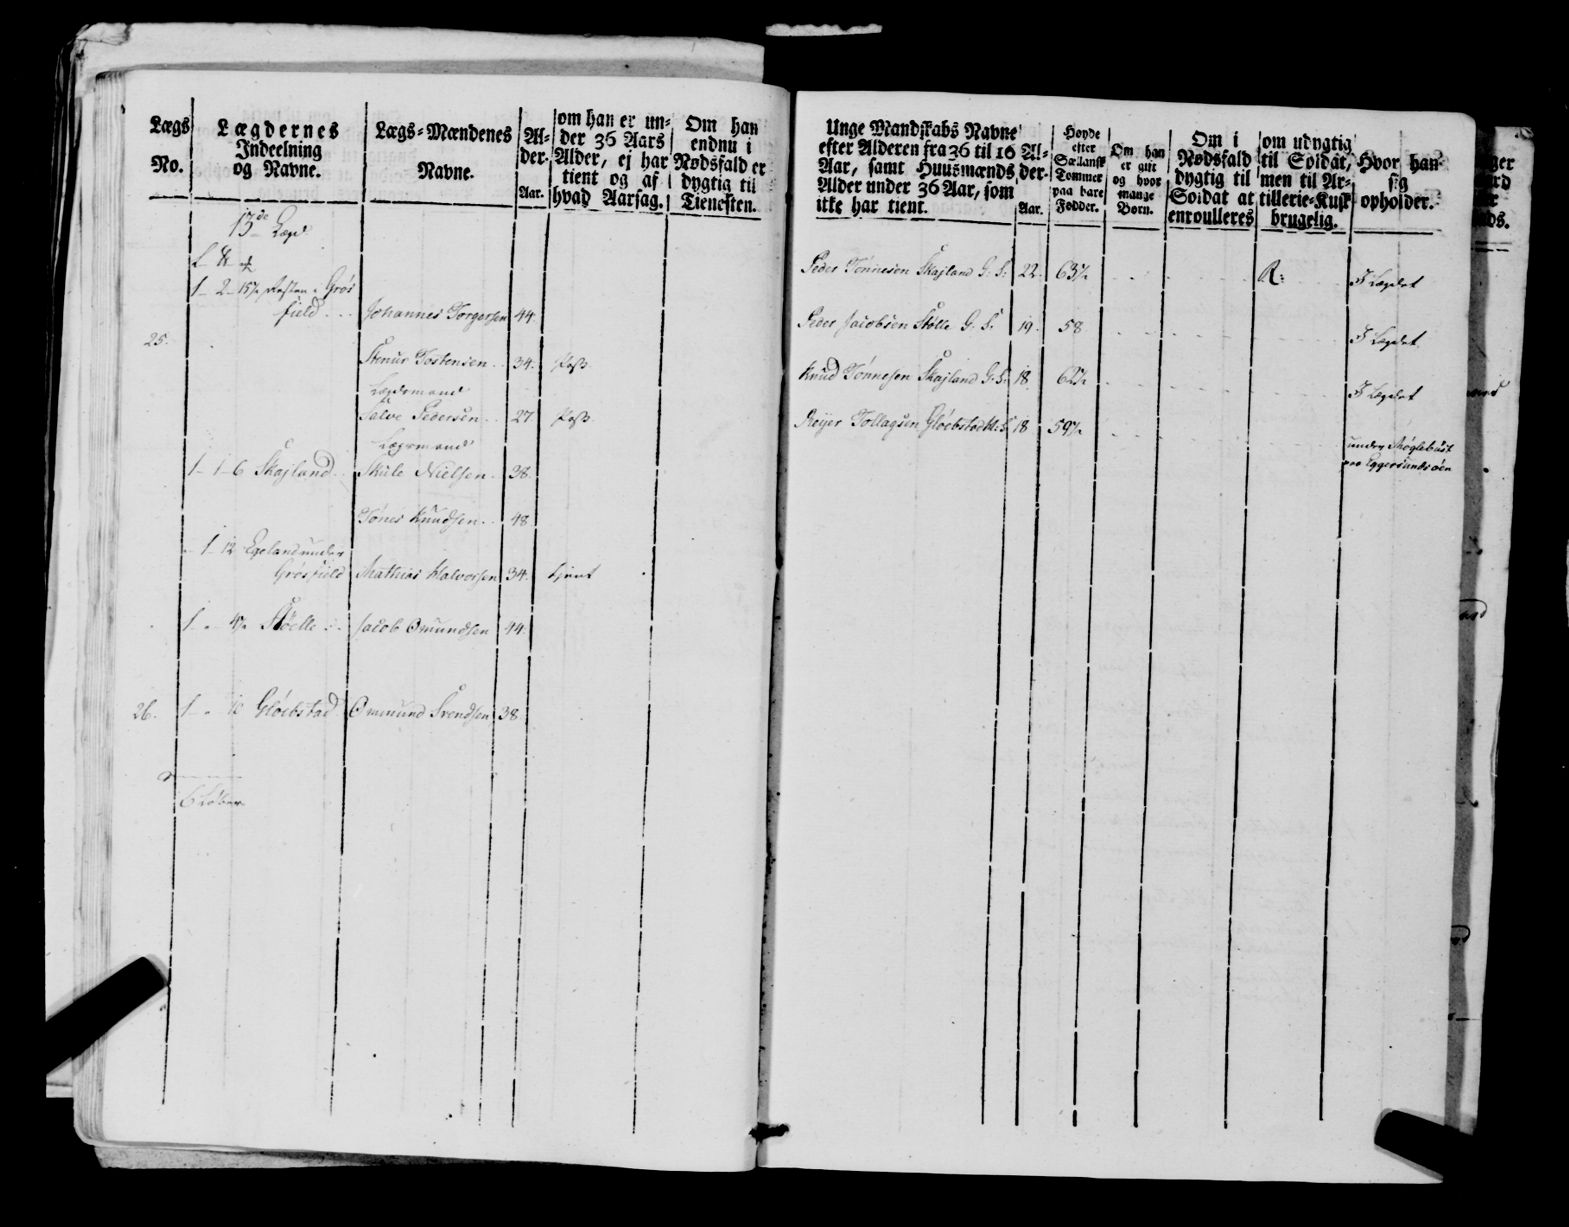 Lægs No.
Lægdernes Indeelning og Navne.
Lægs-Mændenes Navne.
Al-der. Aar.
om han er un-
der 36 Aars
Alder, ej har
tient og af
hvad Aarsag.
Om han
endnu i
Nødsfald er
dygtig til
Tienesten.
13de Lægd
1 - 2 - 15½ Røsten Grøs
field . . . Johannes Torgersen 44
25.
Stenur Tostensen . . 34. Pass
Lægdsmand
Salve Pedersen . . 27. Pass
Lægsmand
1 - 1 - 6 Skajland . Skule Nielsen . 38.
Tønes Knudsen . . 48
1 - 12 Egeland under
Grøsfield Mathias Halvorsen 34. tient
1 - „ 4½ Støelle . . Jacob Omundsen 44.
26. 1 - „ 12 Gløebstad Ommund Svendsen 38.
6 Løber
Unge Mandskabs Navne
efter Alderen fra 36 til 16
Aar, samt Huusmænds
Alder under 36 Aar, som
ikke har tient.
Al-der. Aar.
Høyde
efter
Siællansk
Tommer
paa bare
Fødder.
Om han
er gift
og hvor
mange
Børn.
Om i
Nødsfald
dygtig til
Soldat at
enroulleres
om udygtig
til Soldat,
men til Ar-
tillerie-Kusk
brugelig.
Hvor han
sig
opholder.
Peder Tønnesen Skajland G: S: 22. 63½ R: I Lægdet
Peder Jacobsen Stølle G. S. 19. 58 I Lægdet
Knud Tønnesen Skajland G. S. 18 62½ I Lægdet
Reijer Tollagsen Gløebstad H. S. 18 59½
under Møglebust
paa Eggersundsøen